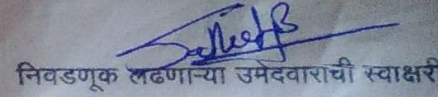 निवडणूक लढणाऱ्या उमेदवाराची स्वाक्षरी